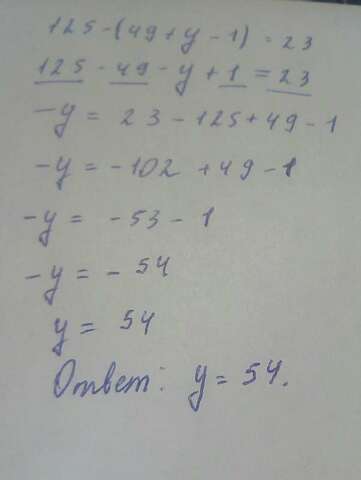 125-(49+y-1)=23
125-49-y+1=23
-y=23-125+49-1
-y=-102+49-1
-y=-53-1
-y=-54
y=54
Ответ: y=54.